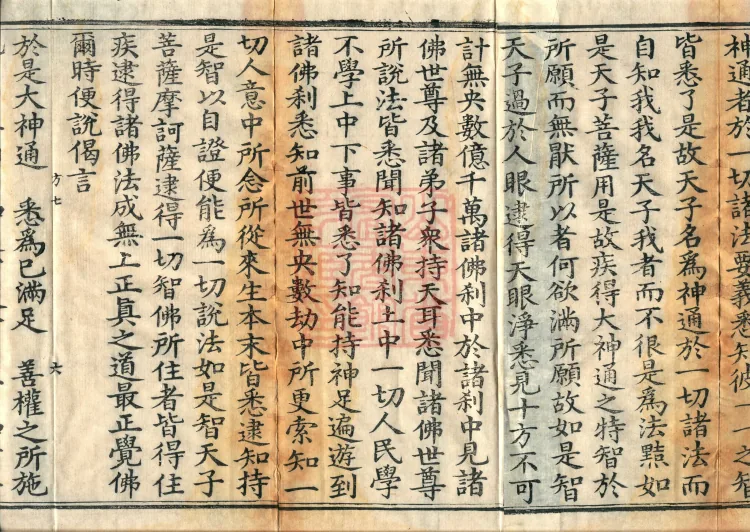 神通者於一切諸法要義悉知彼一一之智
皆悉了是故天子名為神通於一切諸法而
自知我我名天子我者而不很是為法黠如
是天子菩薩用是故疾得大神通之特智於
所願而無猒所以者何欲滿所願故如是智
天子過於人眼逮得天眼淨悉見十方不可
計無央數億千萬諸佛剎中於諸剎中見諸
佛世尊及諸弟子眾持天耳悉聞諸佛世尊
所說法皆悉聞知諸佛剎土中一切人民學
不學上中下事皆悉了知能持神足遍遊到
諸佛剎悉知前世無央數劫中所更索知一
切人意中所念所從來生本末皆悉逮知持
是智以自證便能為一切說法如是智天子
菩薩摩訶薩逮得一切智佛所住者皆得住
疾逮得諸佛法成無上正真之道最正覺佛
爾時便說偈言
方七 六
於是大神通 悉為已滿足 善權之所施